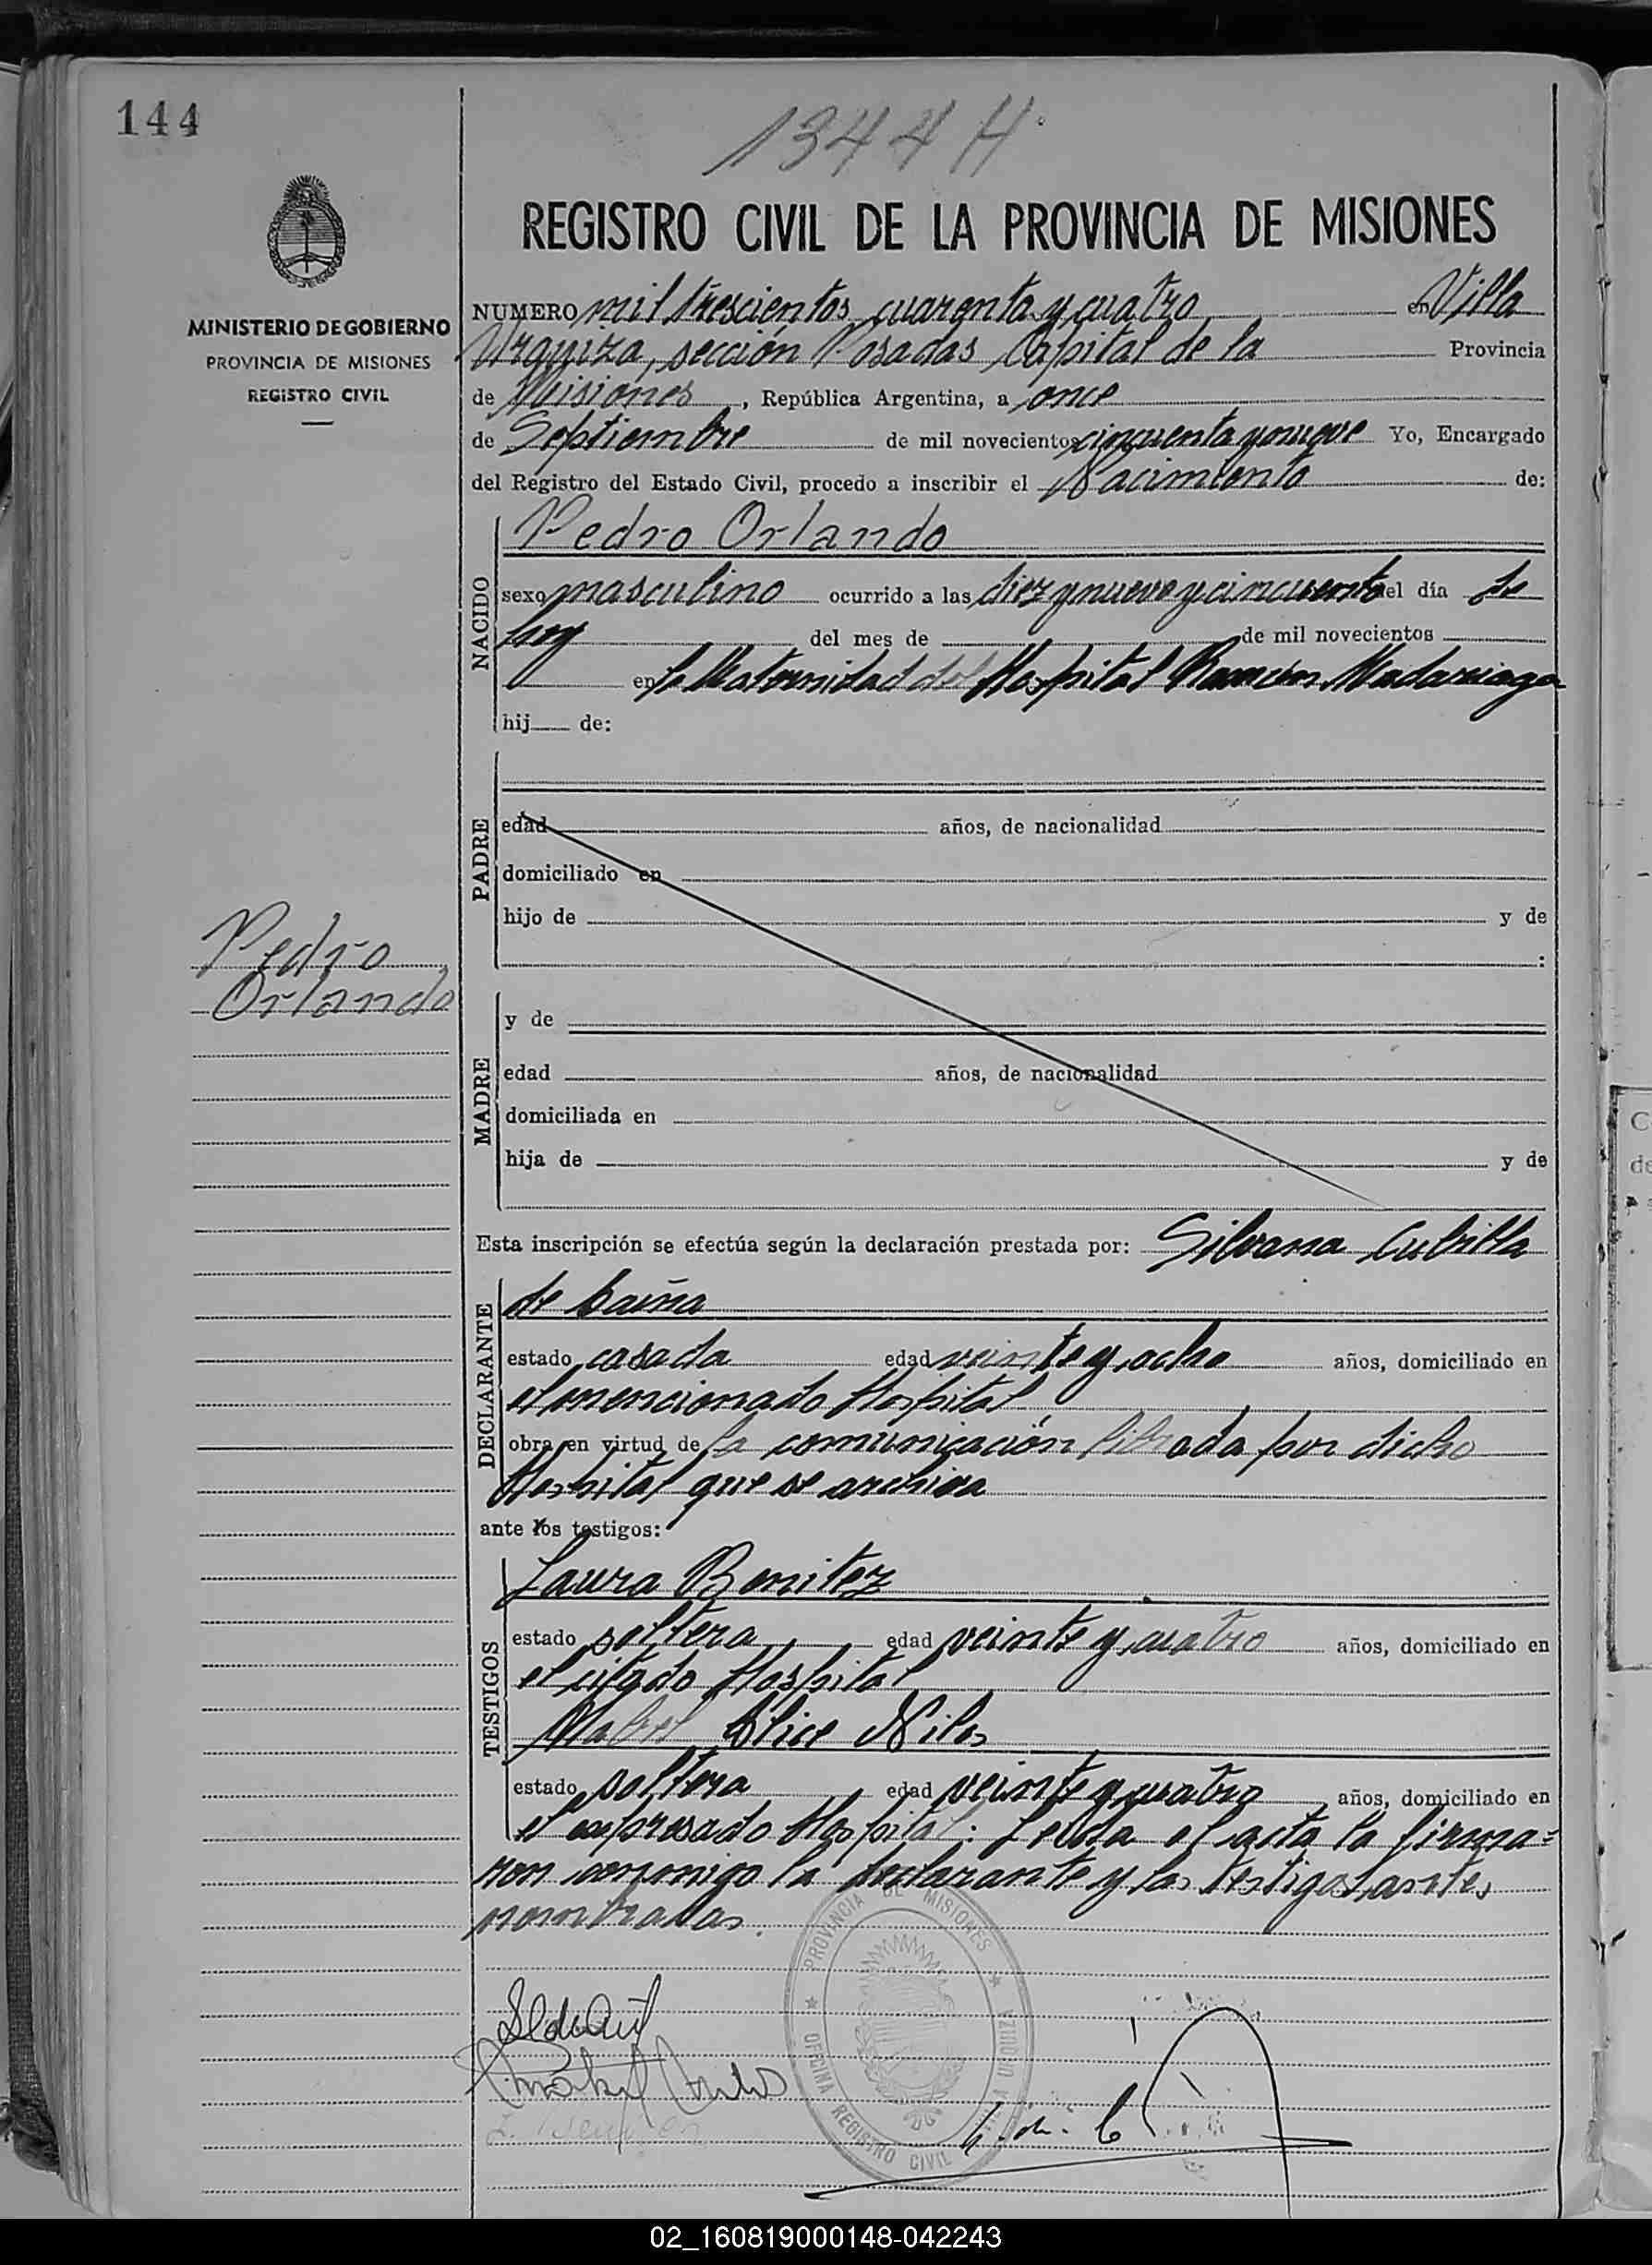 144
1344 H
REGISTRO CIVIL DE LA PROVINCIA DE MISIONES
MINISTERIO DE GOBIERNO
PROVINCIA DE MISIONES
REGISTRO CIVIL
NUMERO mil trescientos cuarenta y cuatro en Villa
Urquiza, sección Posadas Capital de la Provincia
de Misiones, República Argentina, a once
de Septiembre de mil novecientos cincuenta y nueve Yo, Encargado
del Registro del Estado Civil, procedo a inscribir el Nacimiento de:
NACIDO
Pedro Orlando
sexo masculino ocurrido a las diez y nueve y cincuenta del día de
hoy del mes de de mil novecientos
en la Maternidad del Hospital Ramón Madariaga
hij de:
PADRE
edad años, de nacionalidad
domiciliado en
hijo de y de
:
Pedro
Orlando
MADRE
y de
edad años, de nacionalidad
domiciliada en
hija de y de
Esta inscripción se efectúa según la declaración prestada por: Silvana Cubilla
DECLARANTE
de
estado casada edad veinte y ocho años, domiciliado en
el mencionado Hospital
obra en virtud de la comunicación librada por dicho
Hospital que se archiva
ante los testigos:
TESTIGOS
Laura Benitez
estado soltera edad veinte y cuatro años, domiciliado en
el citado Hospital
Mabel Alice
estado soltera edad veinte y cuatro años, domiciliado en
el expresado Hospital. Leída el acta la firma=
ron conmigo la declarante y las testigos antes
nombradas.
PROVINCIA DE MISIONES
OFICINA REGISTRO CIVIL VILLA URQUIZA
02_160819000148-042243